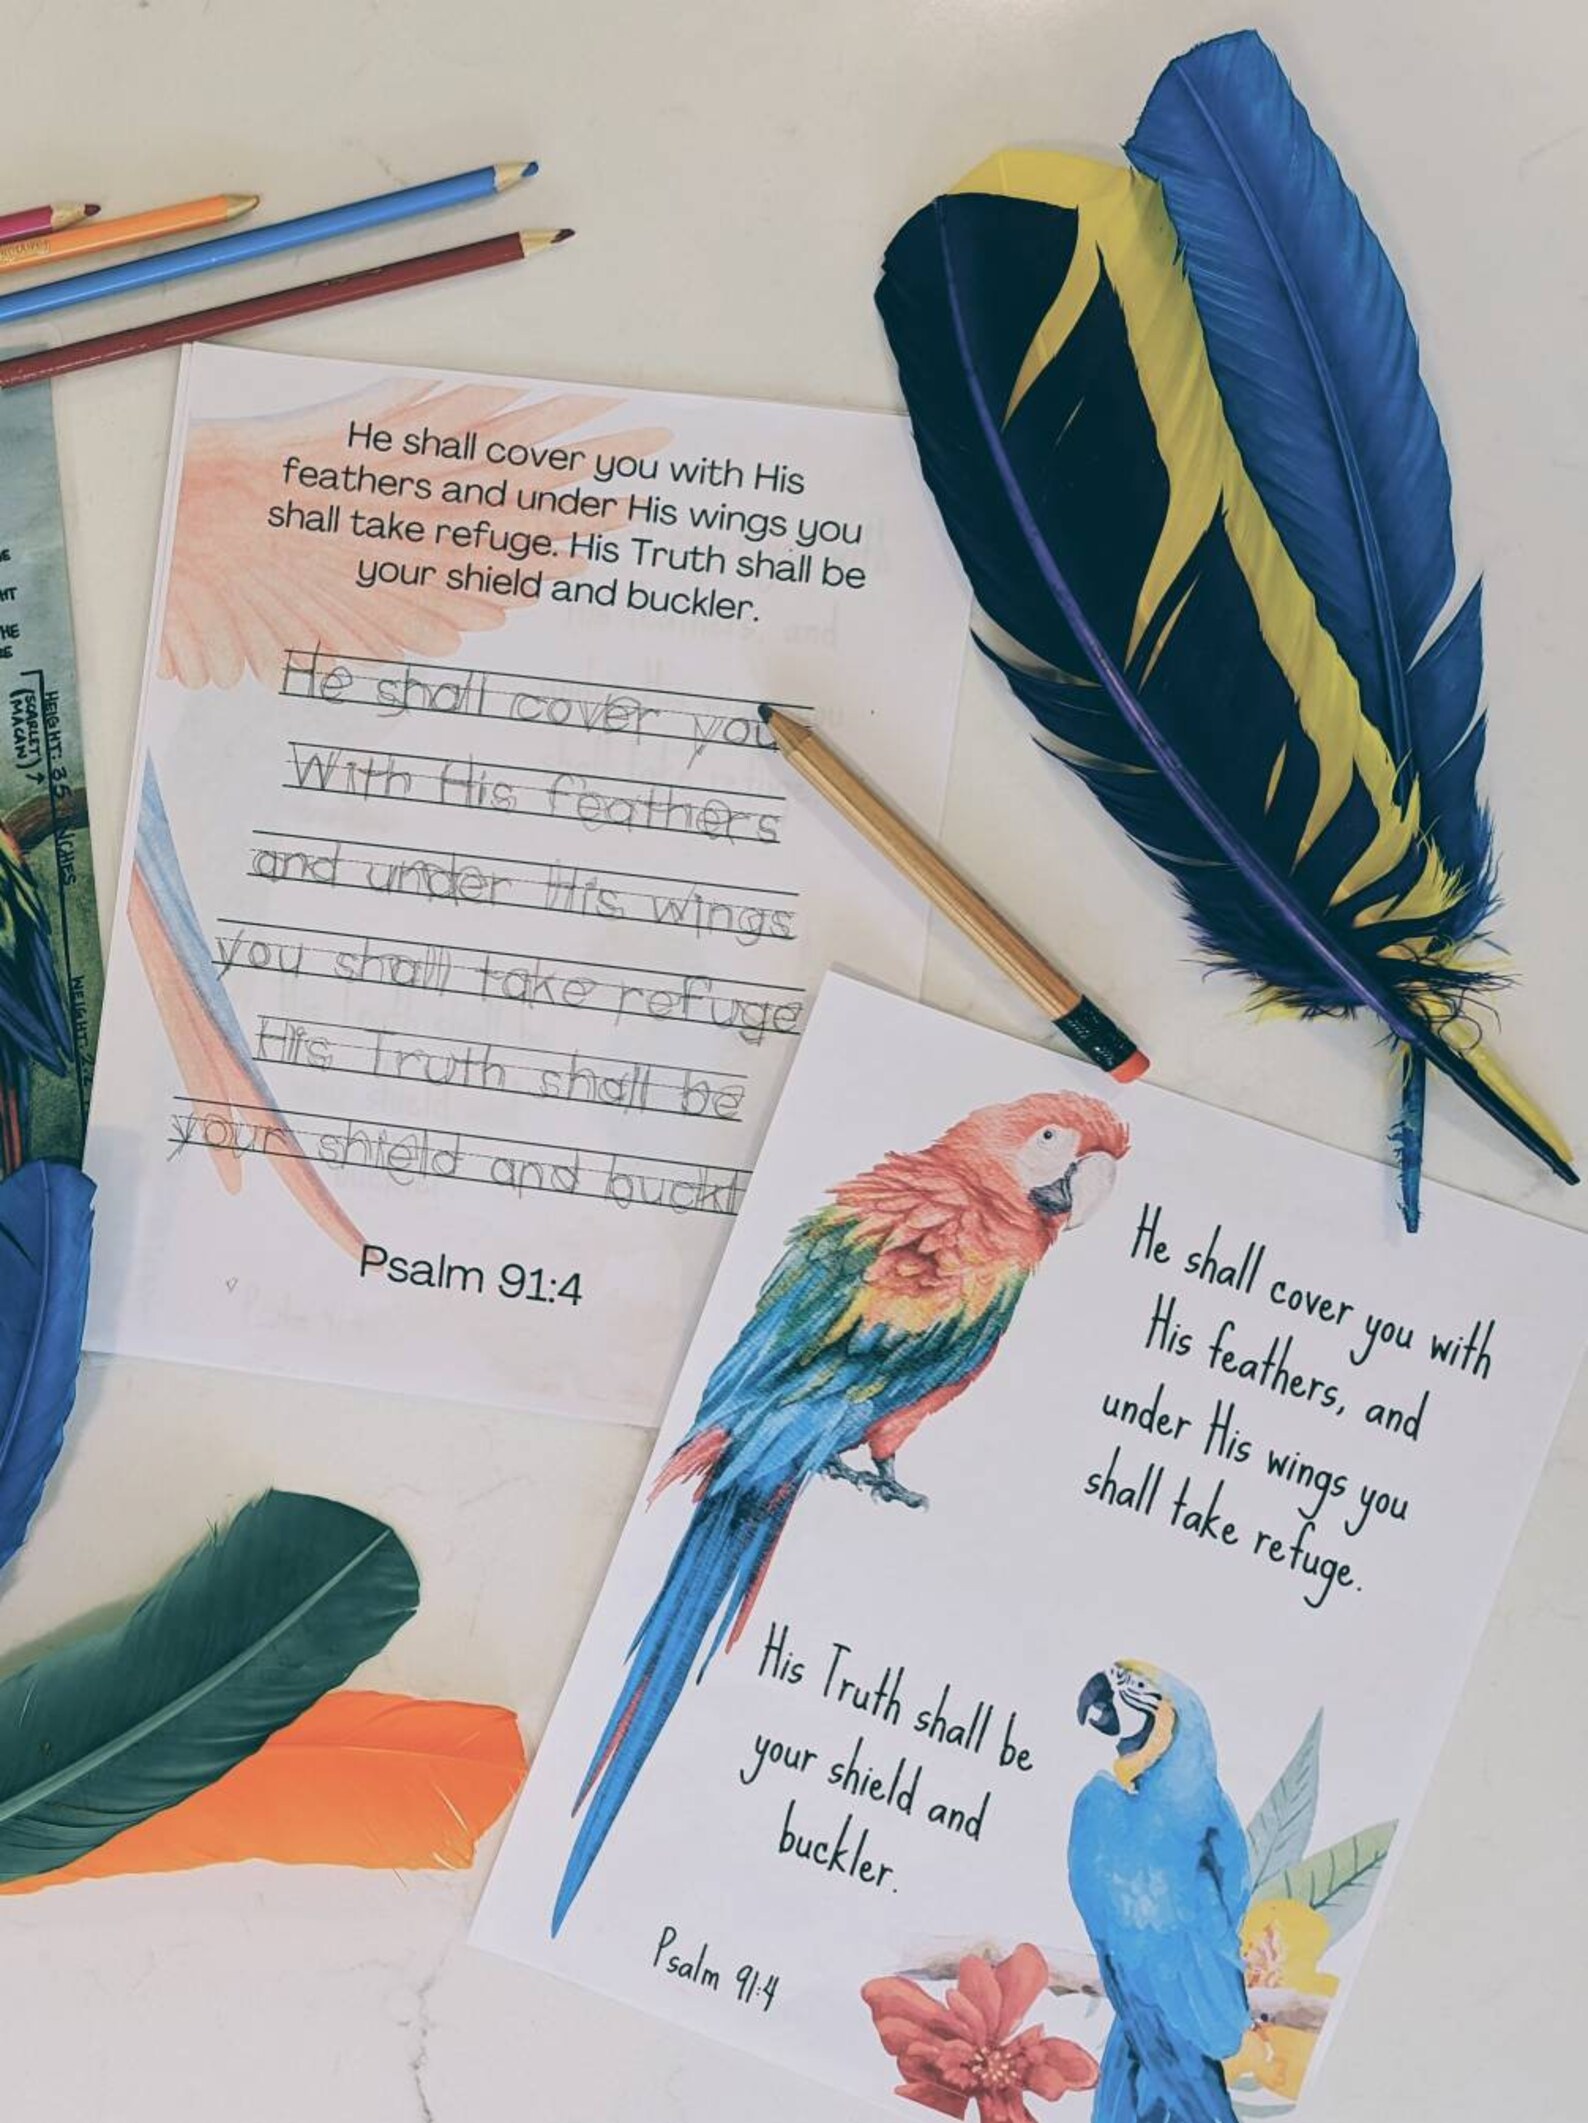 HT
HE
HEIGHT: 35 INCHES
(SCARLET
MACAW)
WEIGHT: 2
He shall cover you with His
feathers and under His wings you
shall take refuge. His Truth shall be
your shield and buckler.
He shall cover you
With His feathers
and under His wings
you shall take refuge
His Truth shall be
your shield and buckl
Psalm 91:4
He shall cover you with
His feathers, and
under His wings you
shall take refuge.
His Truth shall be
your shield and
buckler.
Psalm 91:4